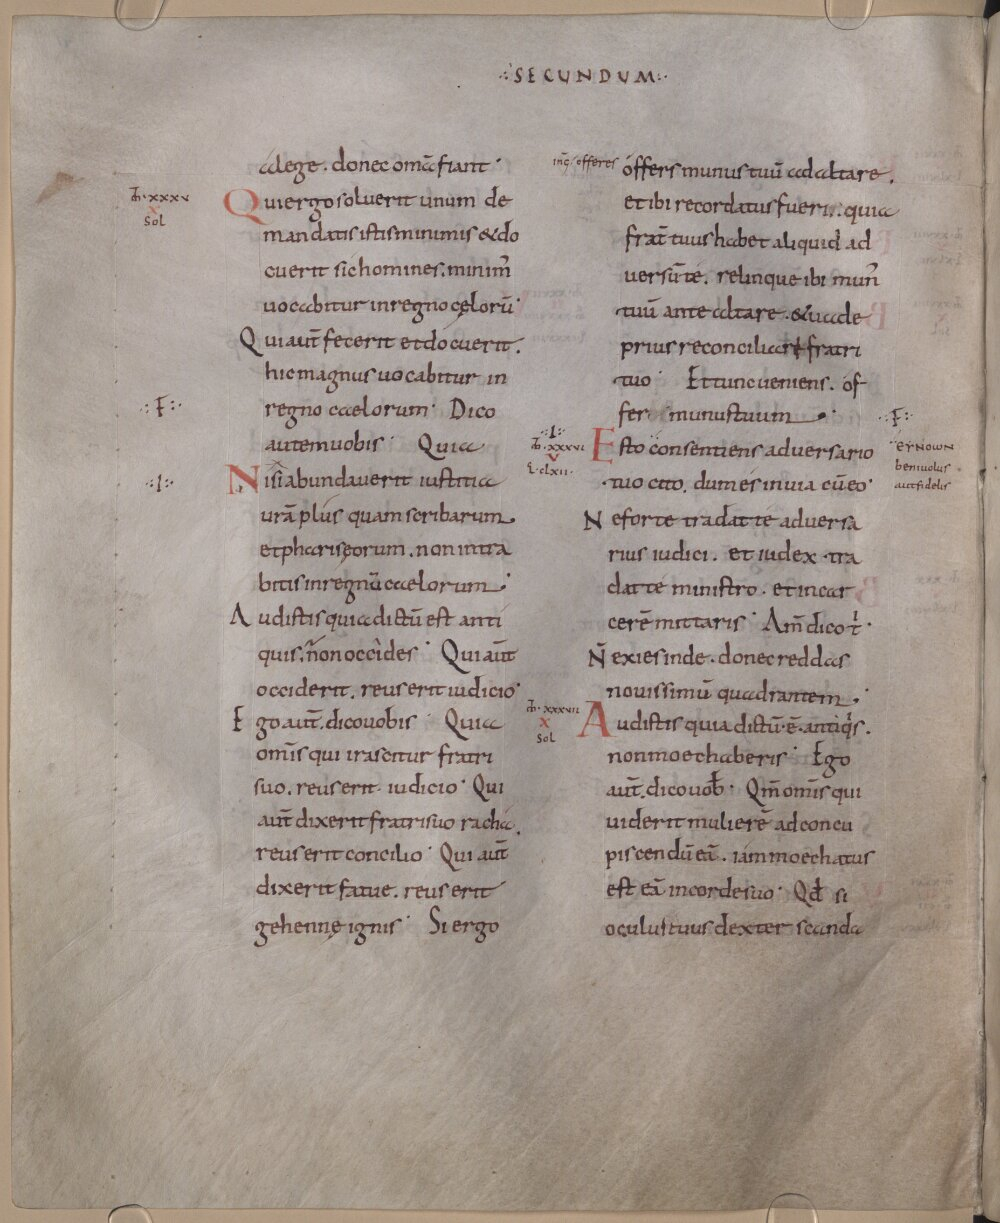 ·:SECUNDUM:·
alege. donec om̄a fiant·
M̄·xxxv
x
Sol
Qui ergo soluerit unum de
mandatis istis minimis & do
cuerit sic homines. minim᷒
uocabitur in regno cęlorū·
Qui aut̄ fecerit et docuerit.
hic magnus uocabitur in
·:F:·
regno caelorum· Dico
autem uobis· Quia
·:I:·
Nisi abundauerit iustitia
urā plus quam scribarum
et pharisęorum. non intra
bitis in regnū caelorum·
Audistis quia dictū est anti
quis. n̄ non occìdes· Qui aut̄
occiderit. reus erit iudicio·
Ego aut̄. dico uobis· Quia
omīs qui irascitur fratri
suo. reus erit iudicio· Qui
aut̄ dixerit fratri suo racha.
reus erit concilio· Qui aut̄
dixerit fatue. reus erit
gehennę ignis· Si ergo
offeres
óffers munus tuū ad altare.
et ibi recordatus fueris. quia
frat̄ tuus habet aliquid ad
uersū te. relinque ibi mun᷒
tuū ante altare. & uade
prius reconciliare fratri
tuo· Et tunc ueniens. of
fer munus tuum·
·:F:·
·:I:·
M̄·xxxvi
v
L·clxii·
Esto consentiens aduersario
ΕΥΝΟωΝ
beniuolus
aut fidelis
tuo cito. dum es in uia cū eo·
Ne forte tradat te aduersa
rius iudici. et iudex tra
dat te ministro. et in car
cerē mittaris· Am̄ dico t̄·
N̄ exies inde. donec reddas
nouissimū quadrantem·
M̄·xxxvii
x
Sol
Audistis quia dictū·ē·antiq̇s.
non moechaberis· Ego
aut̄. dico uob̄· Qm̄ omīs qui
uiderit mulierē ad concu
piscendū eā. iam moechatus
est eā in corde suo· Qd̄ si
oculus tuus dexter scanda